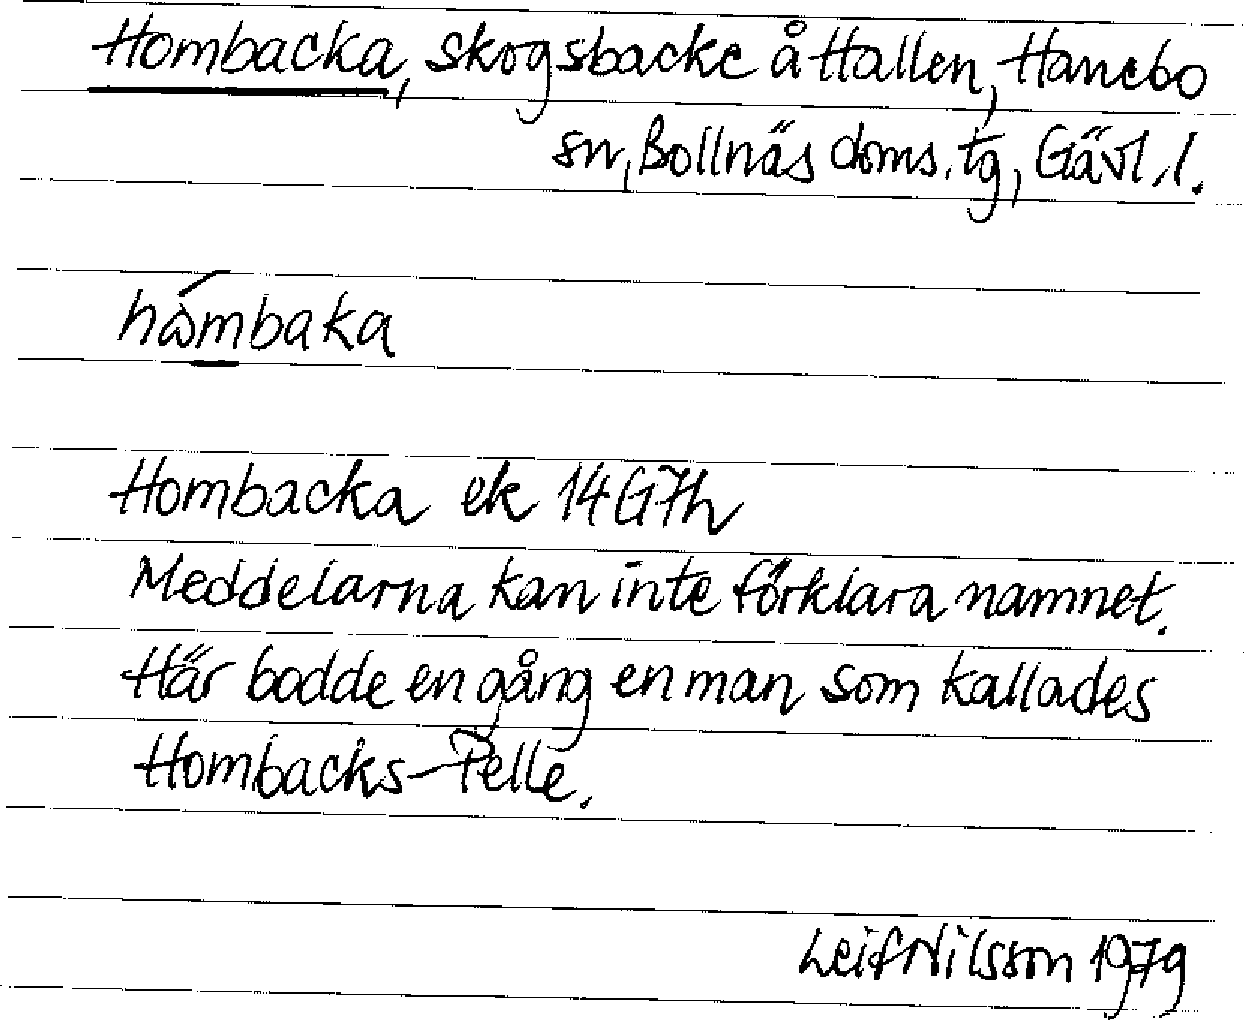 Hombacka, skogsbacke å Hallen, Hanebo
sn, Bollnäs doms. tg, Gävl. l.
håmbaka
Hombacka ek 14G7h
Meddelarna kan inte förklara namnet.
Här bodde en gång en man som kallades
Hombacks-Pelle.
Leif Nilsson 1979